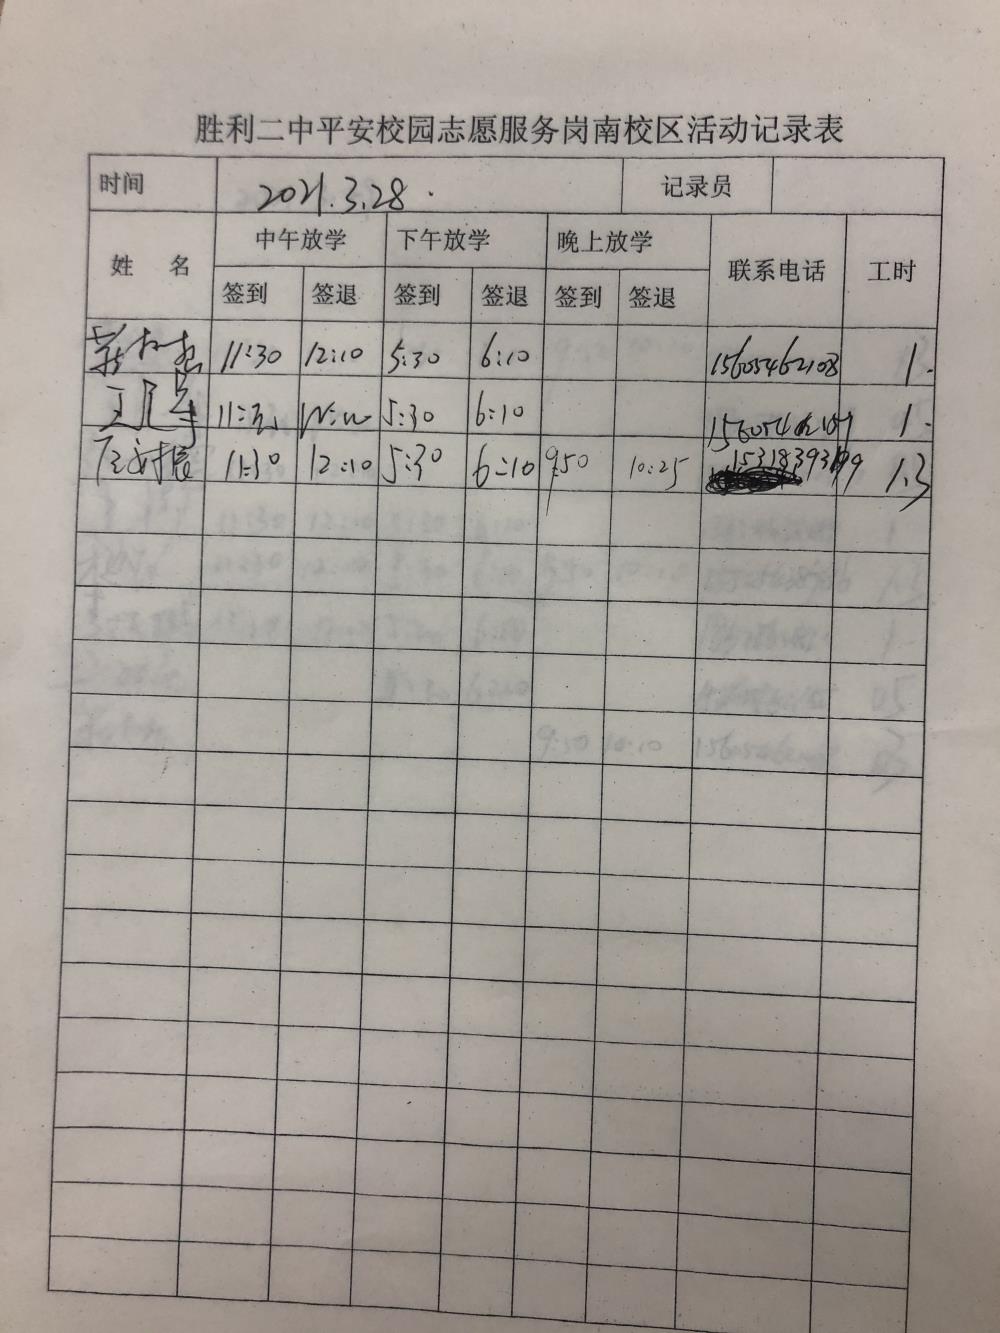 胜利二中平安校园志愿服务岗南校区活动记录表
时间 2021.3.28. 记录员
姓 名 中午放学 下午放学 晚上放学 联系电话 工时
签到 签退 签到 签退 签到 签退
11:30 12:10 5:30 6:10 15605462108 1.
11:30 5:30 6:10 1.
11:30 12:10 5:30 6:10 9:50 10:25 1.3